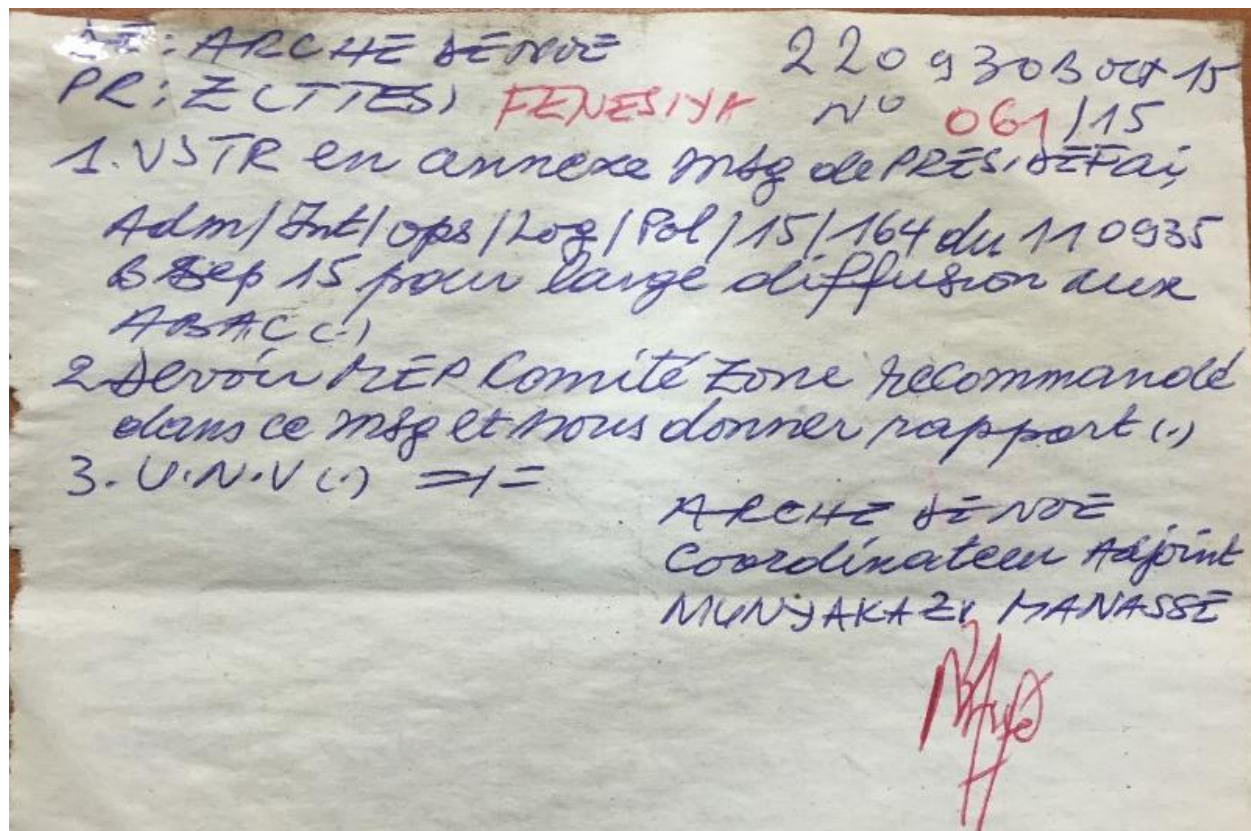 DE : ARCHE DE NOE 220930B oct 15
PR : Z (TTES) FENESIYA N° 061/15
1. VSTR en annexe msg de PRESI DEFAI,
Adm/Int/ops/Log/Pol/15/164 du 110935
B Sep 15 pour large diffusion aux
ABAC (.)
2 Devoir MEP Comité Zone recommandé
dans ce msg et nous donner rapport (.)
3. U.N.V (.) =1=
ARCHE DE NOE
Coordinateur Adjoint
MUNYAKAZI MANASSE